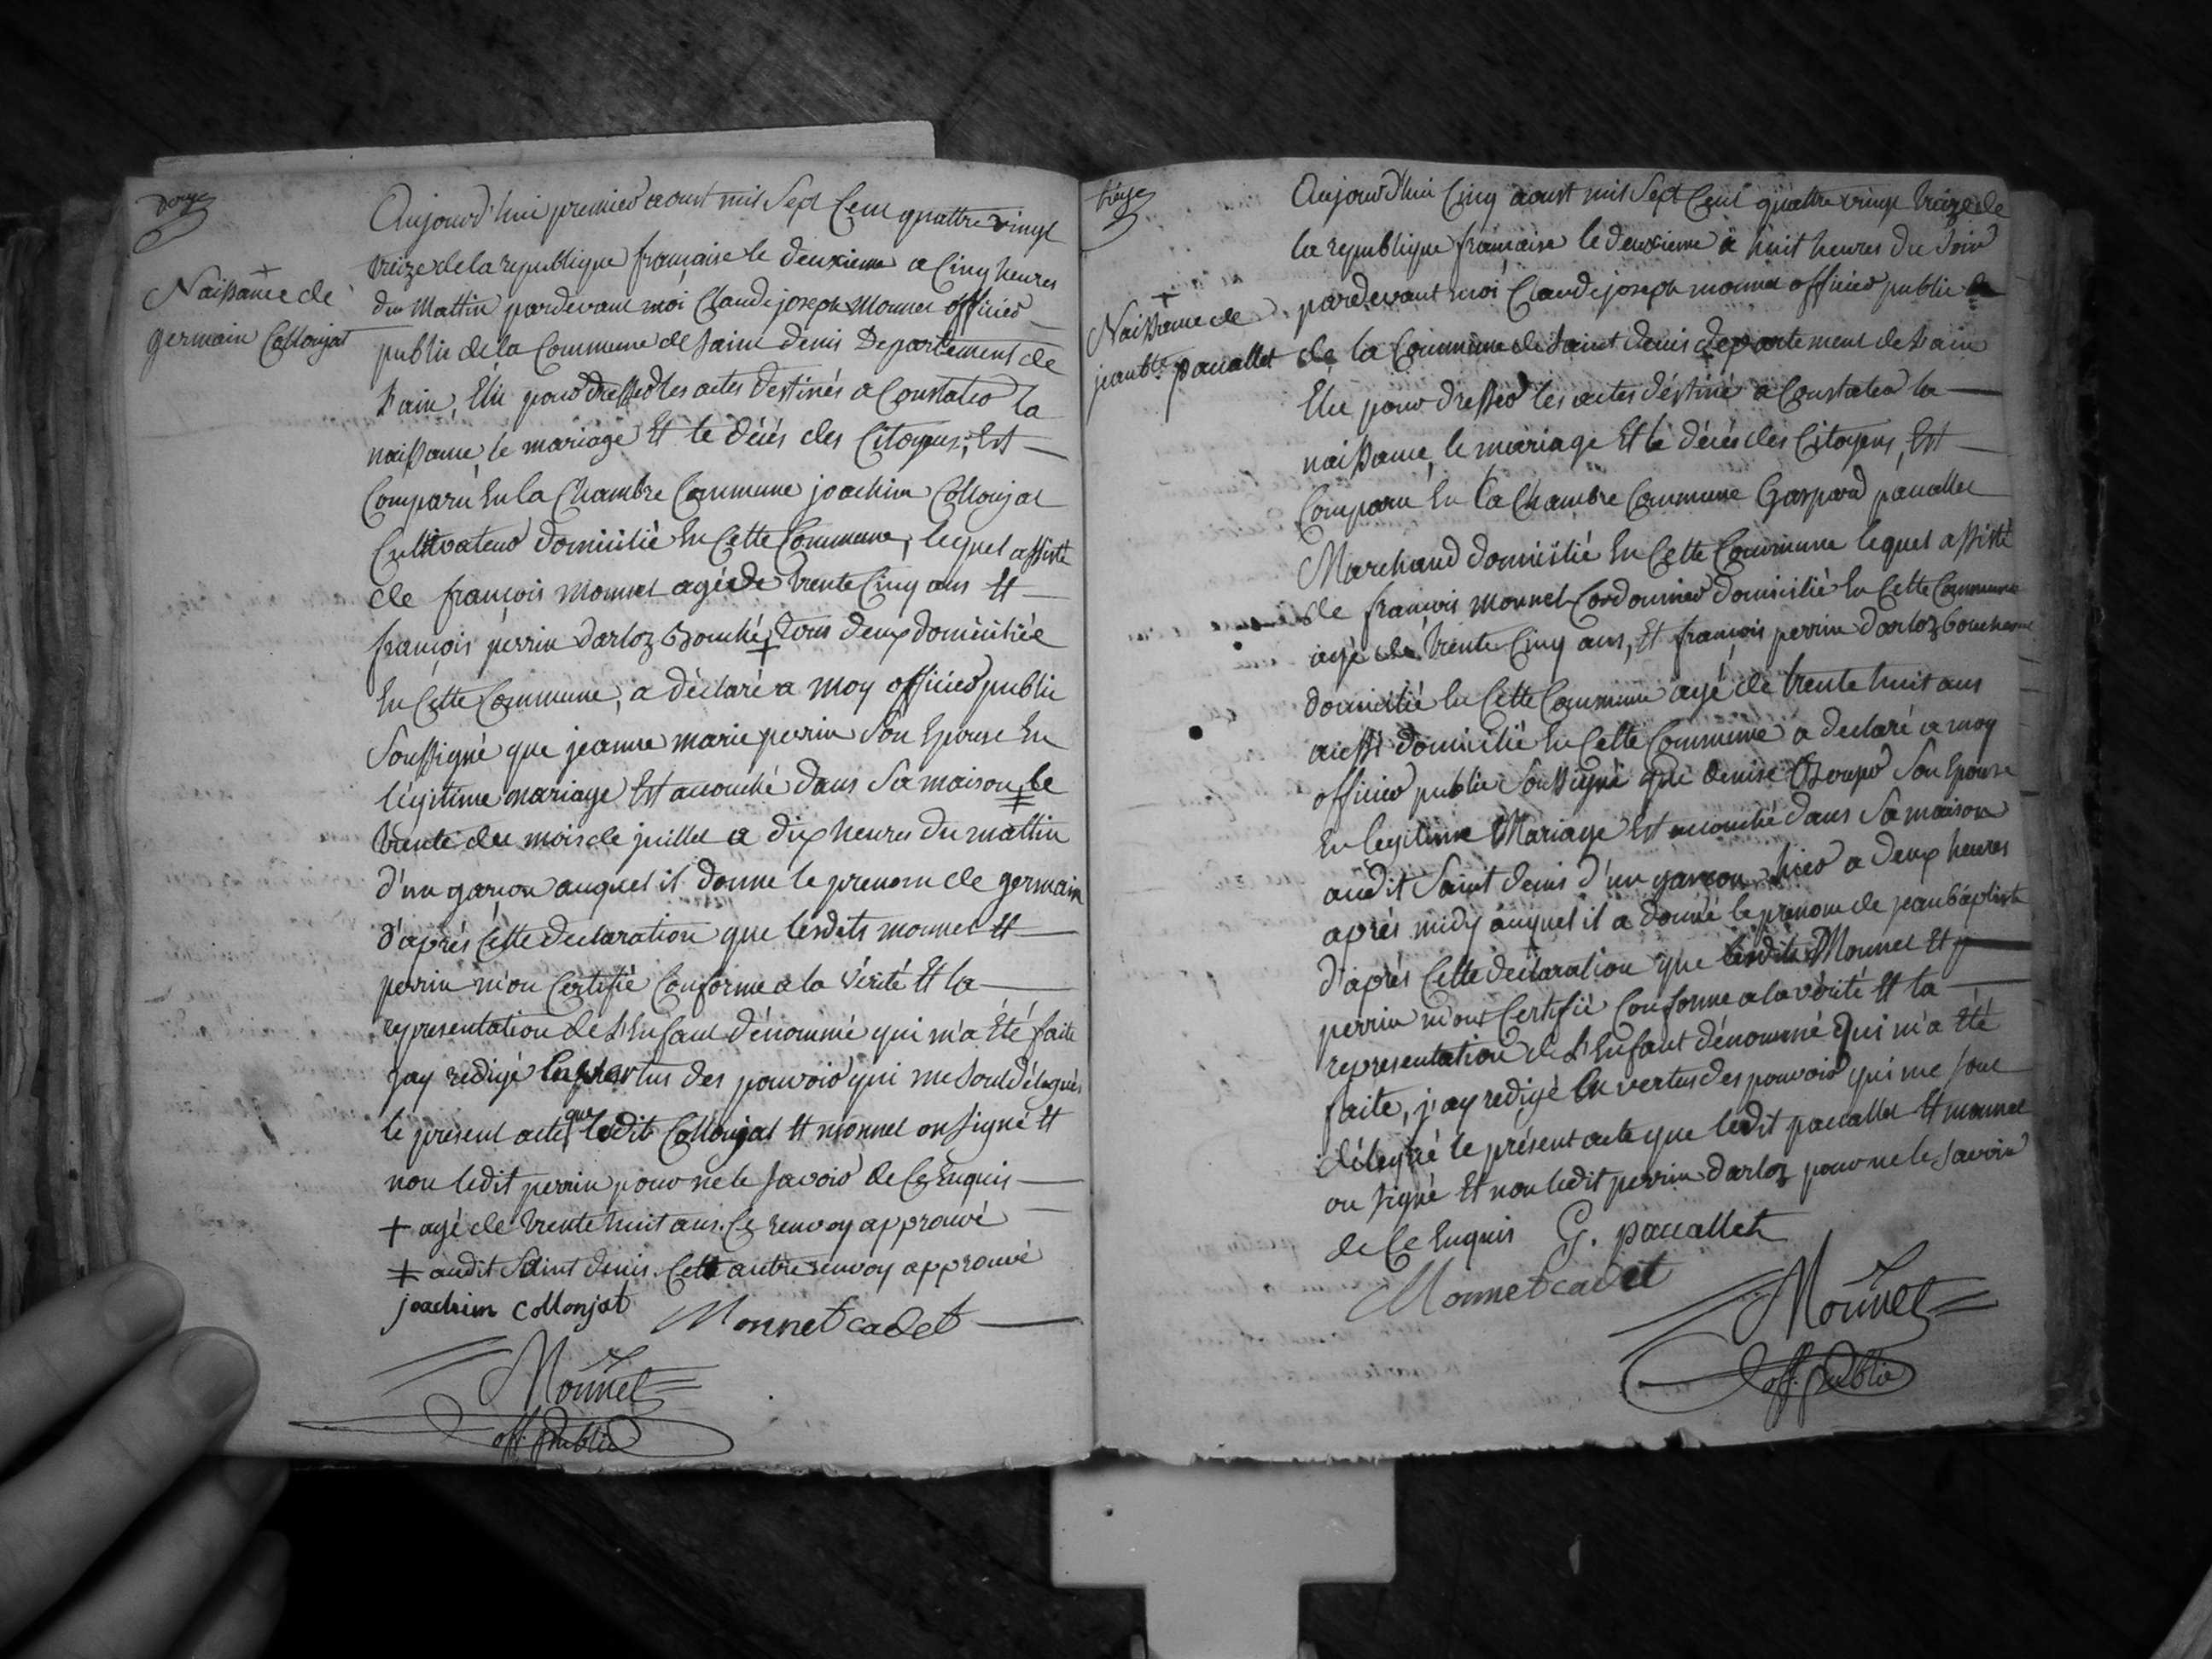 douze
Naissance de
germain Collonjat
Aujourd'hui premier aoust mil Sept Cent quattre vingt
treize de la republique française le deuxieme a Cinq heures
du Mattin pardevant moi Claude joseph Monnet officier
public de la Commune de Saint denis Departement de
L'ain, Elu pour dresser les actes destinés a Constater la
naissance, le mariage Et le décés des Citoyens, Est
Comparu En la Chambre Commune joachim Collonjat
Cultivateur domicilié En Cette Commune, lequel assisté
de françois Monnet agé de trente Cinq ans Et
françois perrin darloz Bouché ‡ tous deux domiciliée
En Cette Commune, a déclaré a moy officier public
Soussigné que jeanne marie perrin Son Epouse En
légitime mariage Est accouché dans Sa maison ‡ le
trente du mois de juillet a dix heures du mattin
d'un garçon auquel il donne le prenom de germain
d'aprés Cette declaration que lesdits monnet Et
perrin m'on Certifié Conforme a la Vérité Et la
representation de L'Enfant dénommé qui m'a Eté faite
jay redigé En vertus des pouvoir qui me Sont délegués
le présent acte que ledit Collonjat Et monnet on Signé Et
non ledit perrin pour ne le Savoir de Ce Enquis
+ agé de trente huit ans. Ce renvoy approuvé
‡ audit Saint denis. Cette autre renvoy approuvé
joachim Collonjat Monnet cadet
Monnet
off. public
treize
Naissance de
jean bte. paccallet
Aujourd'hui Cinq aoust mil Sept Cent quattre vingt treize de
la republique française le deuxieme a huit heures du Soir
pardevant moi Claude joseph monnet officier public
de la Commune de Saint denis departement de L'ain
Elu pour dresser les actes déstiné a Constater la
naissance, le mariage Et le décés des Citoyens, Est
Comparu En la Chambre Commune Gaspard paccallet
Marchand domicilié En Cette Commune lequel assisté
de françois Monnet Cordonnier domicilié En Cette Commune
agé de trente Cinq ans, Et françois perrin darloz bouche
domicilié En Cette Commune agé de trente huit ans
aussi domicilié En Cette Commune a declaré a moy
officier public Soussigné que denise Son Epouse
En legitime Mariage Est accouché dans Sa maison
audit Saint denis d'un garçon hier a deux heures
aprés midy auquel il a donné le prenom de jean baptiste
d'aprés Cette declaration que lesdits Monnet Et
perrin m'ont Certifié Conforme a la vérité Et la
representation de L'Enfant dénommé qui m'a Eté
faite, j'ay redigé En vertus des pouvoir qui me Sont
délegué le présent acte que ledit paccallet Et monnet
on signé Et non ledit perrin darloz pour ne le Savoir
de Ce Enquis G. paccallet
Monnet cadet
Monnet
off. public